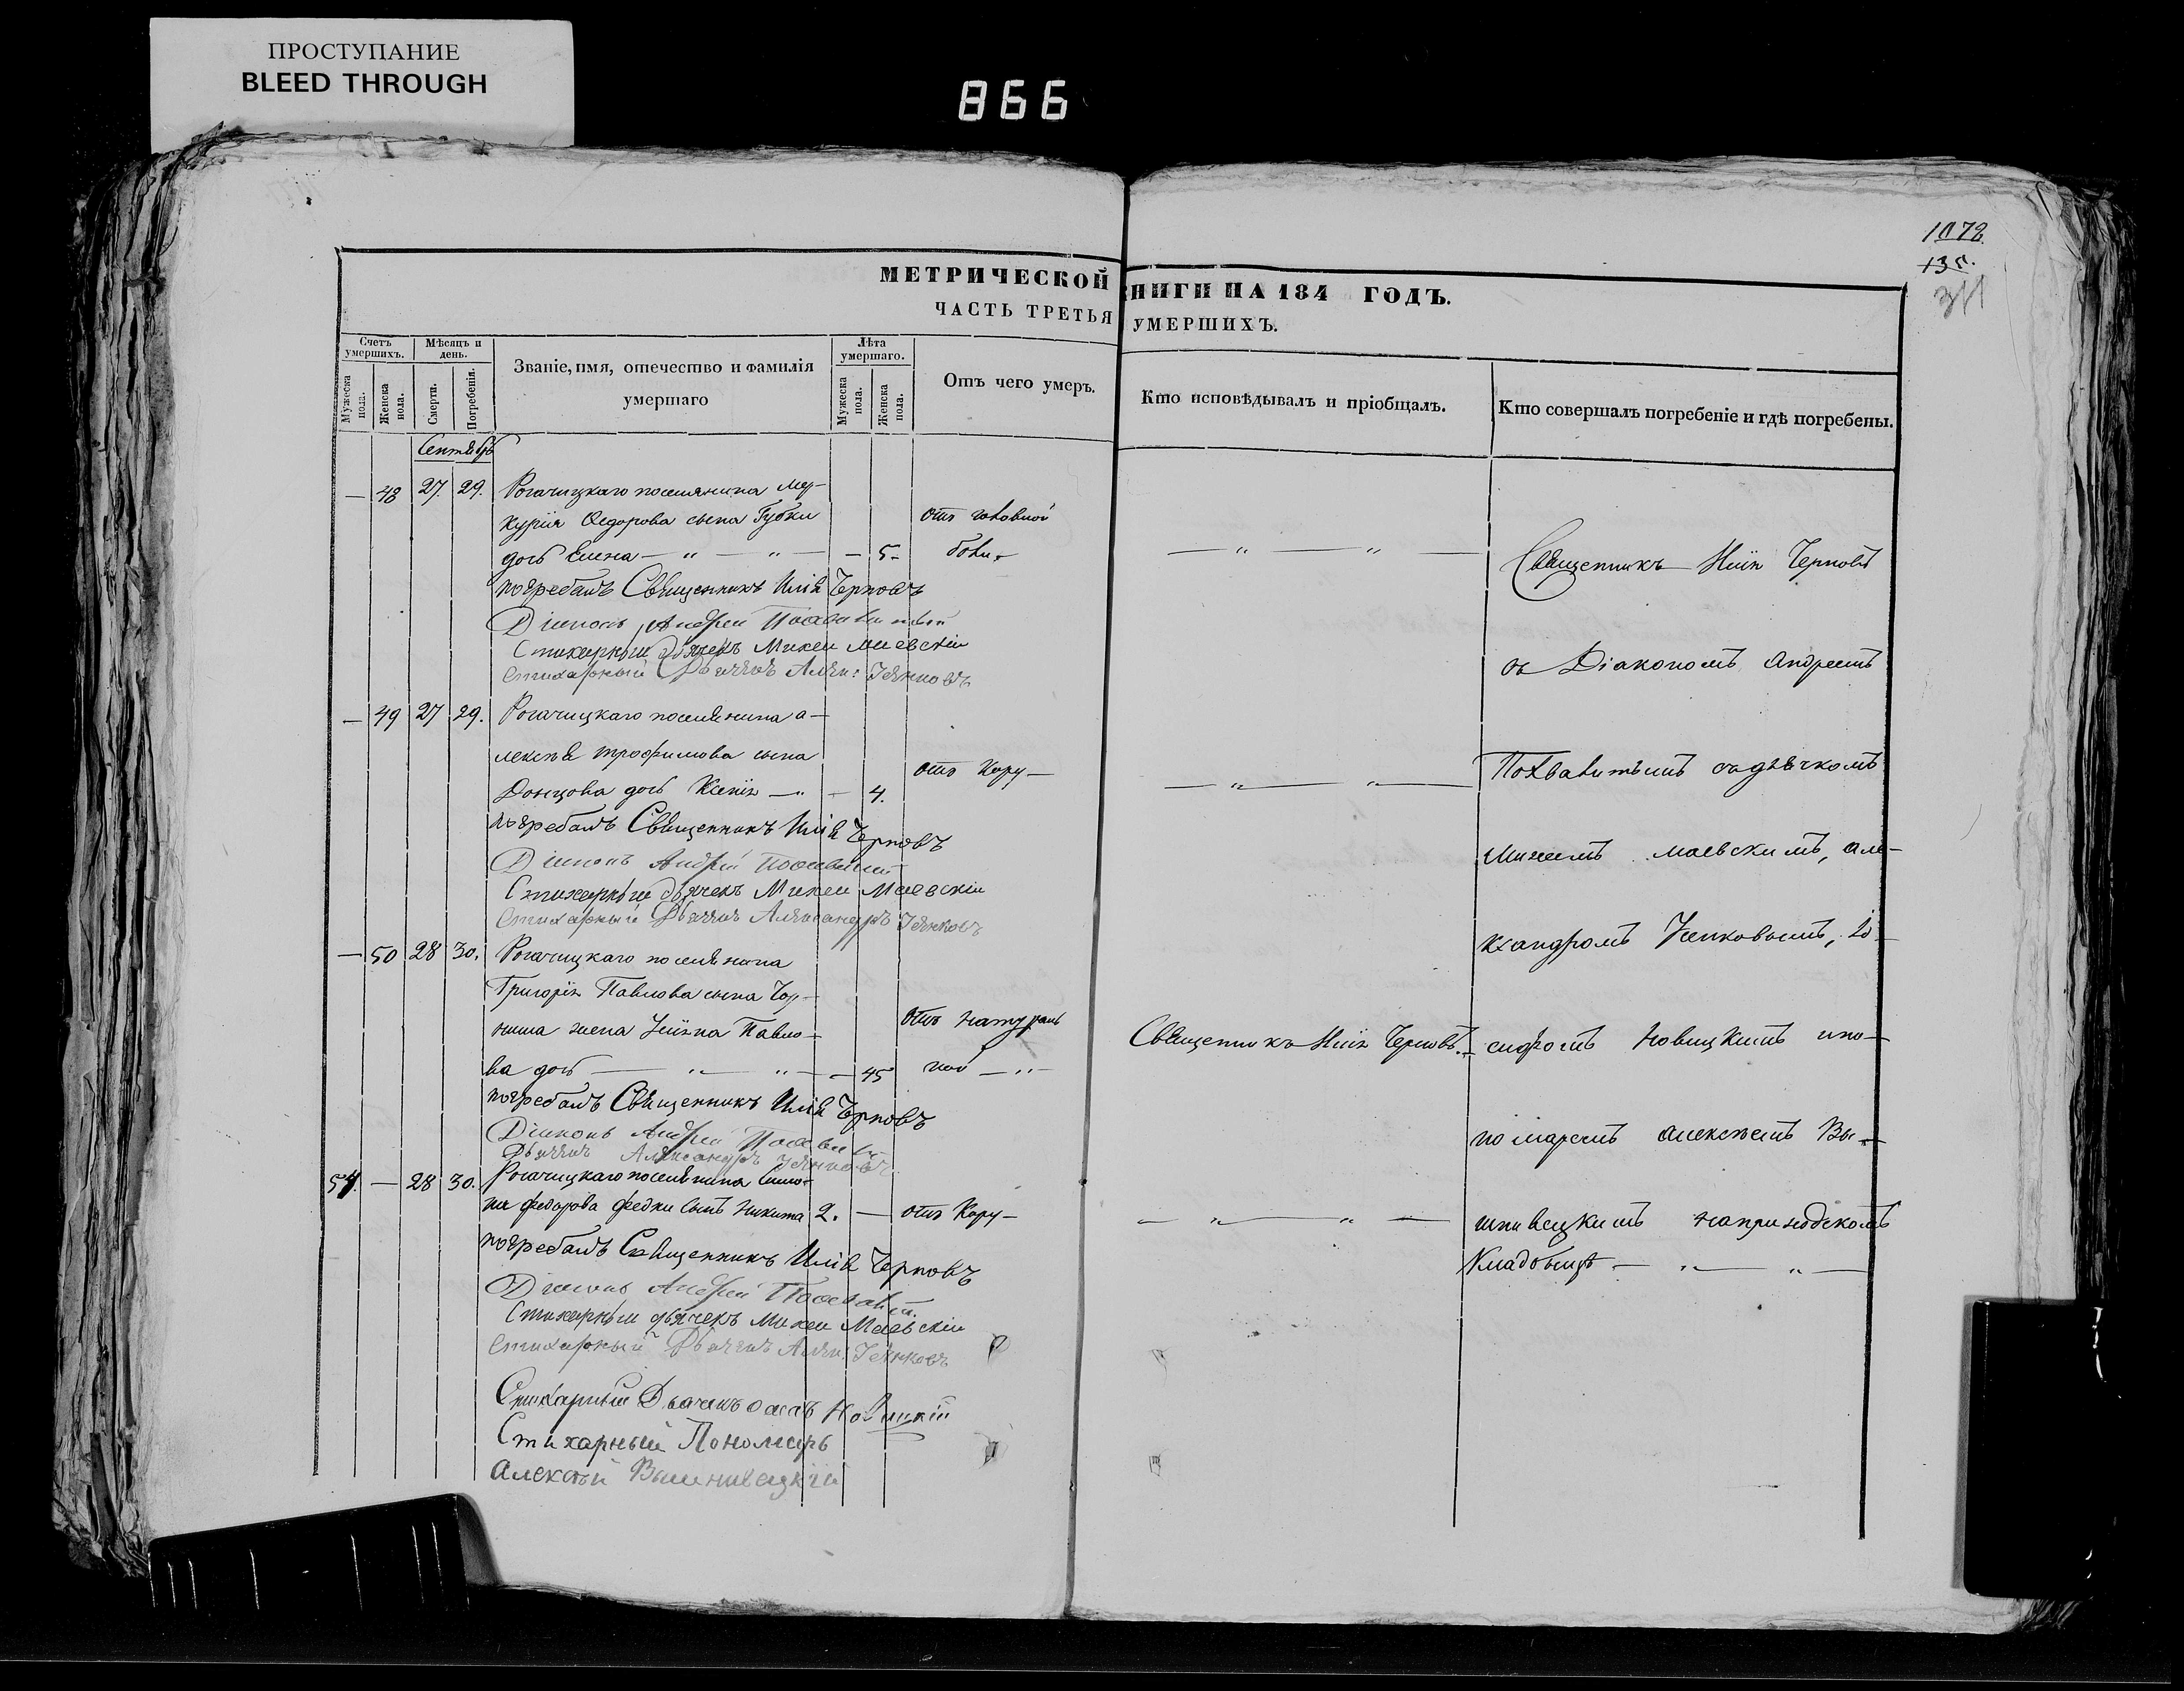 ПРОСТУПАНИЕ
BLEED THROUGH
866
1072.
135.
МЕТРИЧЕСКОЙ КНИГИ НА 184 ГОДЪ.
ЧАСТЬ ТРЕТЬЯ УМЕРШИХЪ.
Счетъ умершихъ.
Мужеска пола.
Женска пола.
Мѣсяцъ и день.
Смерти.
Погребенія.
Званіе, имя, отечество и фамилія умершаго
Лѣта умершаго.
Мужеска пола.
Женска пола.
Отъ чего умеръ.
Кто исповѣдывалъ и пріобщалъ.
Кто совершалъ погребеніе и гдѣ погребены.
Сентябрь
— 48 27. 29. Рогачицкаго поселянина Мер-
курія Федорова сына Губки
дочь Елена — „ — „ — — 5-
отъ головной
боли
погребалъ Священникъ Илія Черновъ
Діаконъ Андрей
Стихарный дьячекъ Михеи Маевскіи
Стихарный Дьячекъ Алек: Усенковъ
— 49 27 29. Рогачицкаго поселянина А-
лексѣя Трофимова сына
Донцова дочь Ксенія — „ — 4.
отъ Кору —
погребалъ Священникъ Илія Черновъ
Діаконъ Андрей
Стихарный дьячекъ Михеи Маевскіи
Стихарный Дьячекъ Александръ Усенковъ
— 50 28 30. Рогачицкаго поселянина
Григорія Павлова сына
жена Уліяна Павло-
ва дочь — „ — „ — — 45
отъ натураль
ной — „ —
погребалъ Священникъ Илія Черновъ
Діаконъ Андрей
Дьячекъ Александръ Усенковъ
51. — 28 30. Рогачицкаго поселянина Симо-
на Федорова Федки сынъ Никита 2. — отъ Кору —
погребалъ Священникъ Илія Черновъ
Діаконъ Андрей
Стихарный дьячекъ Михеи Маевскіи
Стихарный Дьячекъ Алек: Усенковъ
Стихарный Дьячекъ Новицкій
Стихарный Пономарь
Алексѣй Вышнивецкій
— „ — „ —
— „ — „ —
Священникъ Илія Черновъ. —
— „ — „ —
Священникъ Илія Черновъ
съ Діакономъ Андреемъ
Похвалитымъ съ дьячкомъ
Михеемъ Маевскимъ, Але-
ксандромъ Усенковымъ, Іо-
сифомъ Новицкимъ и по-
номаремъ Алексѣемъ Вы-
шнивецкимъ на приходскомъ
Кладбищѣ — „ — „ —